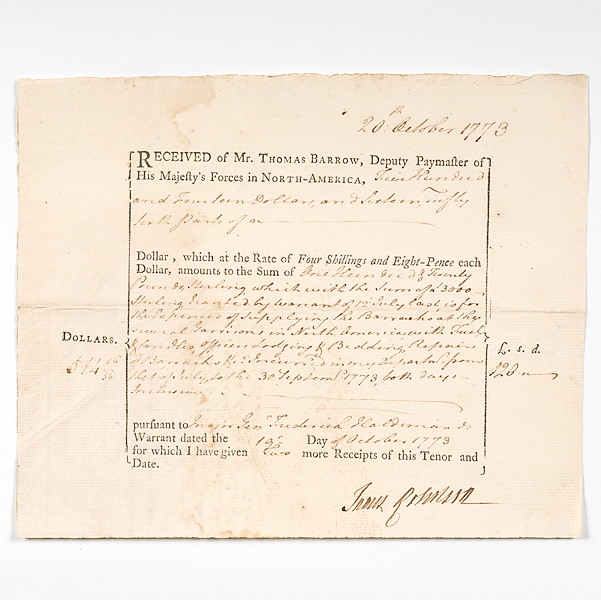 20th October 1773
RECEIVED of Mr. THOMAS BARROW, Deputy Paymaſter of
His Majeſty's Forces in NORTH-AMERICA, Five Hundred
and Fourteen Dollars, and Sixteen Fifty
sixth Parts of a
Dollar, which at the Rate of Four Shillings and Eight-Pence each
Dollar, amounts to the Sum of One Hundred & Twenty
Pounds, Sterling which with the Sum of £3000
Sterling Granted by Warrant of July last, is for
the Expences of Supplying the Barracks at the
several Garrisons in North America with Fuel
& Candles, officers Lodging & Bedding, Repairs
of Barracks &c Incurred in my Departmt from
the July to the 30 Septemr 1773, both days
Inclusive
DOLLARS.
514 16/56
L. s. d.
120
pursuant to Major Genl Frederick Haldimand's
Warrant dated the 19th Day of October 1773
for which I have given Two more Receipts of this Tenor and
Date.
James Robertson